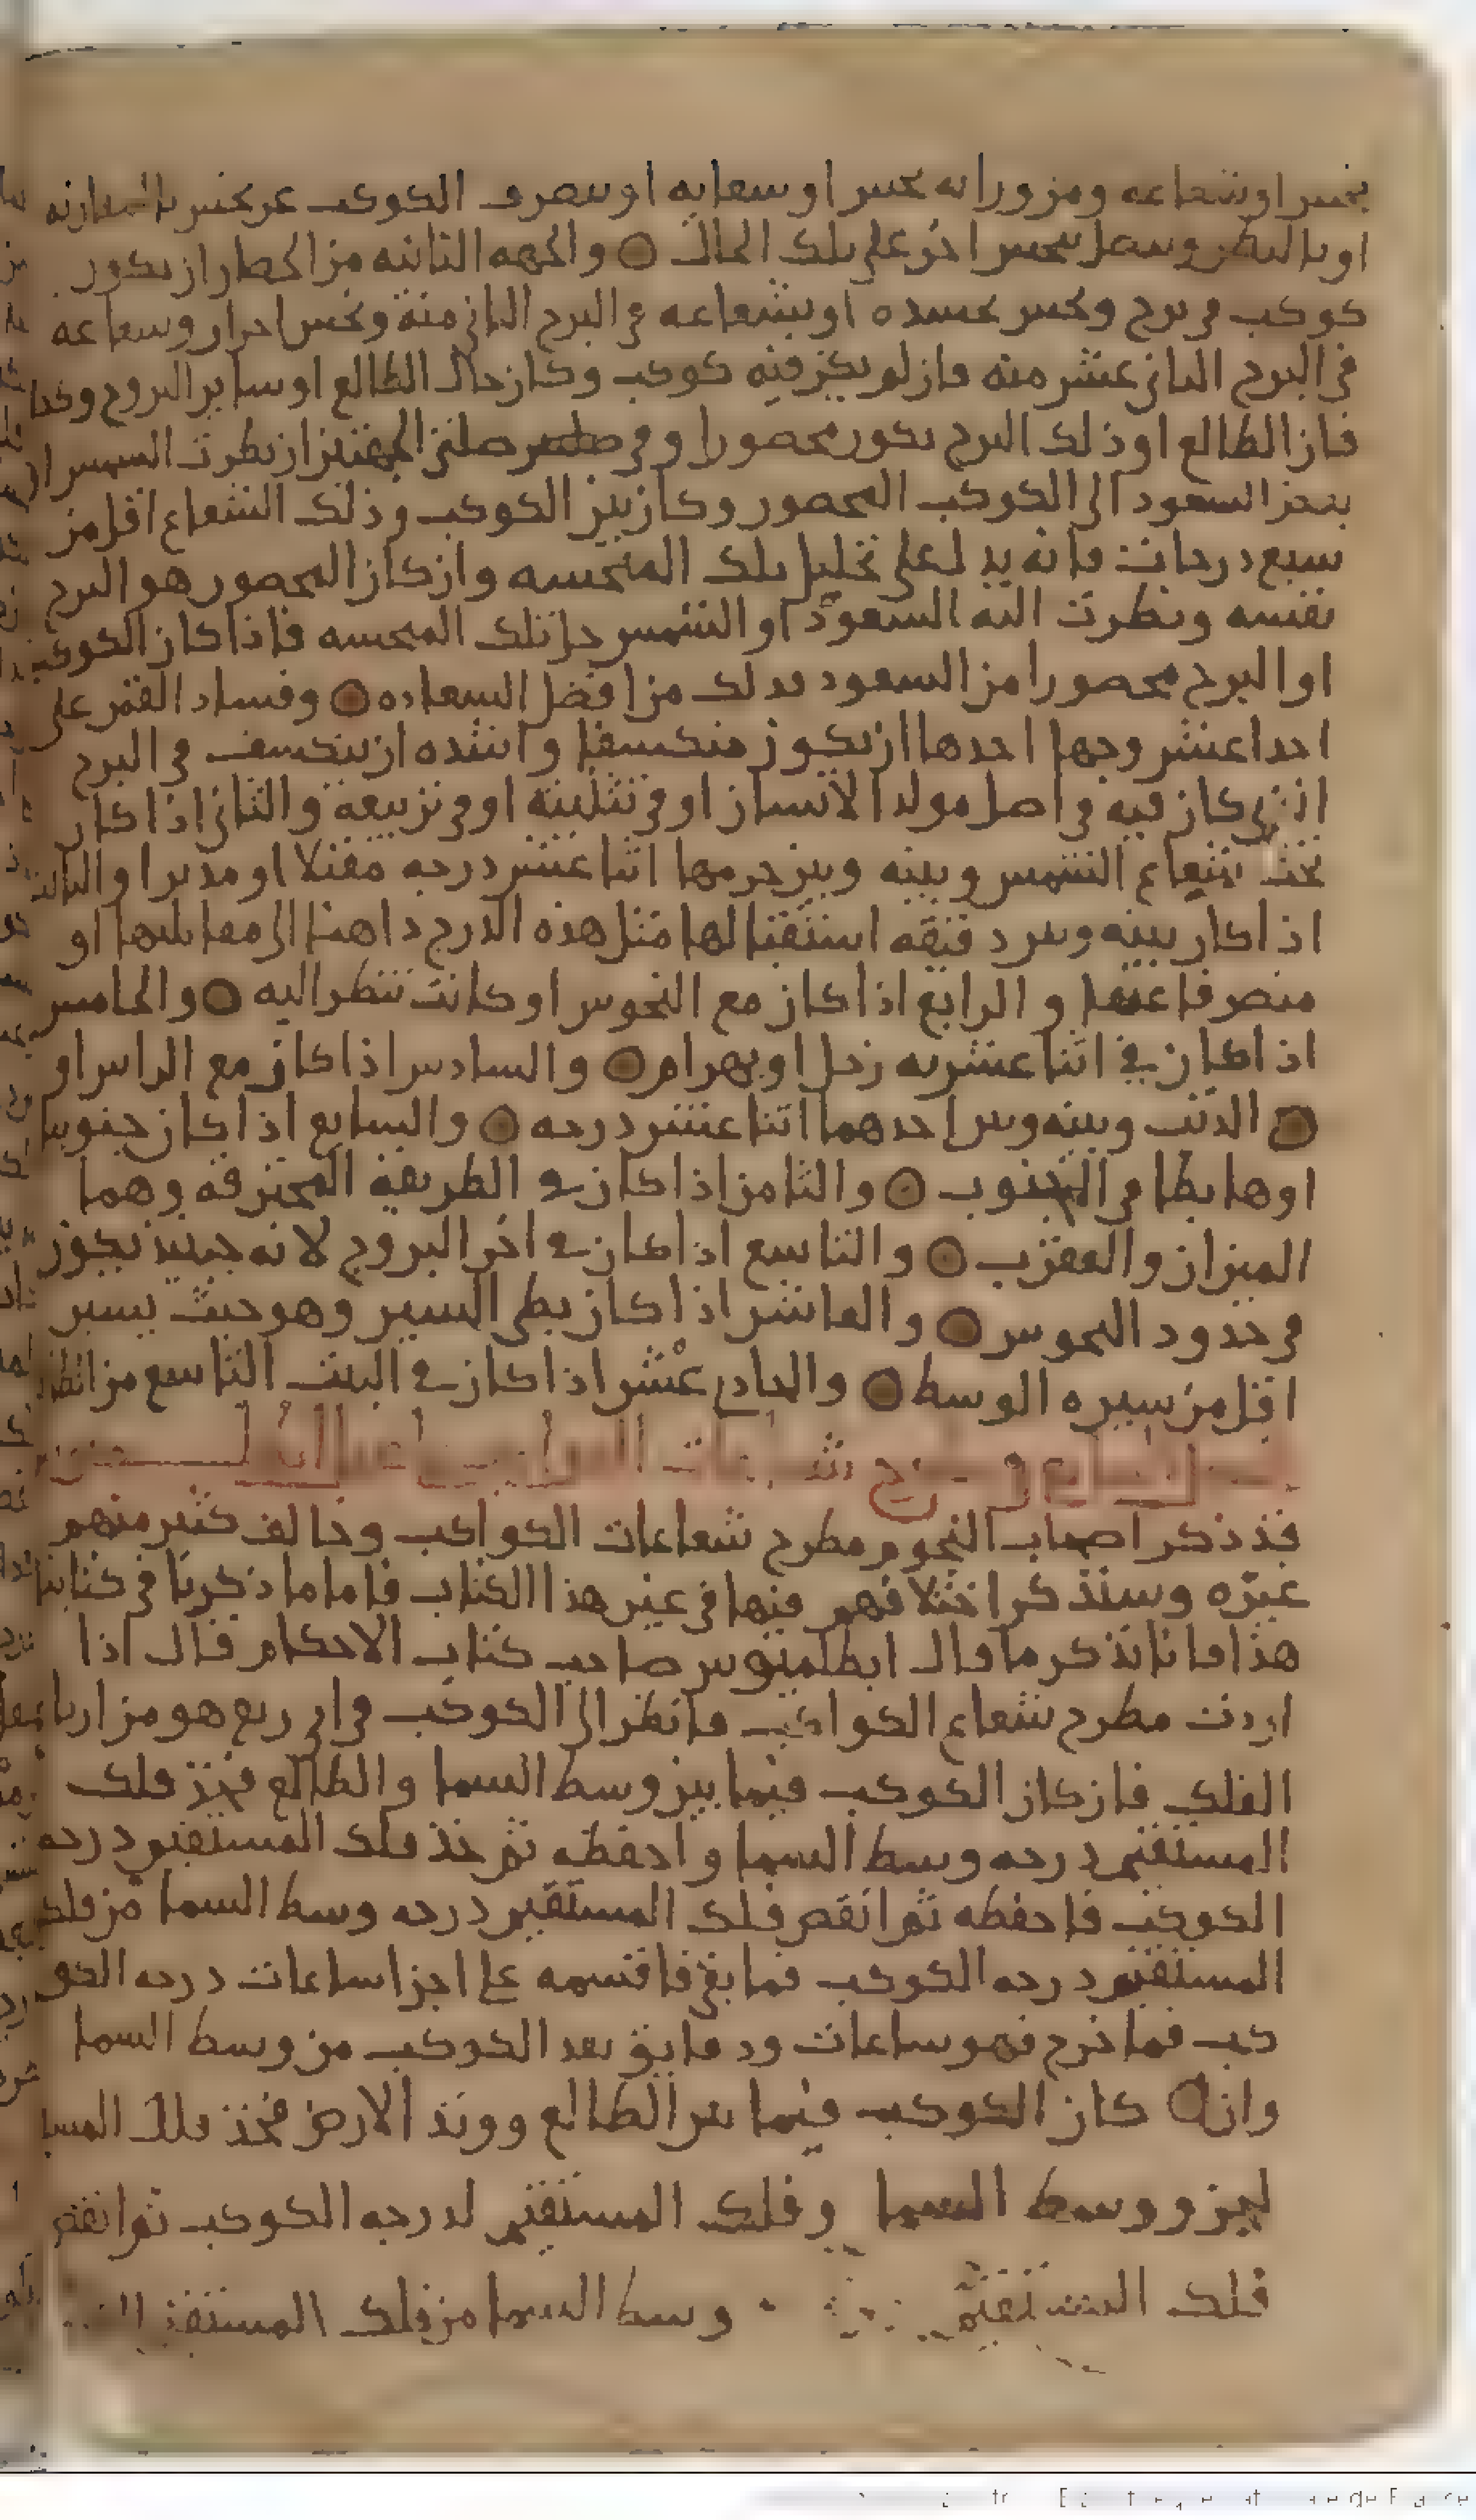 بنحس او شعاعه ومن ورائه نحس او شعابه او ينصرف الكوكب عن نحس بالمقارنه
او بالنظر ويتصل بنحس اخر على تلك الحال ○ والجهه الثانيه من الحصار ان يكون
كوكب في برج ونحس بجسده او بشعاعه في البرج الثاني منه ونحس اخر او شعاعه
في البرج الثاني عشر منه فان لم يكن فيه كوكب وكان حال الطالع او ساير البروج وكذا
فان الطالع او ذلك البرج يكون محصورا وفي الجهتين ان نظرت الشمس او
بعض السعود الى الكوكب المحصور وكان بين الكوكب وذلك الشعاع اقل من
سبع درجات فانه يدل على تحليل تلك المنحسه وان كان المحصور هو البرج
نفسه ونظرت اليه السعود او الشمس حل تلك المنحسه فاذا كان الكوكب
او البرج محصورا من السعود فذلك من افضل السعاده ○ وفساد القمر على
احدا عشر وجها احدها ان يكون منكسفا واشده ان ينكسف في البرج
الذي كان فيه في اصل مولد الانسان او في تثليثه او في تربيعه والثاني اذا كان
تحت شعاع الشمس وبينه وبين جرمها اثنا عشر درجه مقبلا او مدبرا والثالث
اذا كان بينه وبين دقيقه استقبالها مثل هذه الدرج ذاهبا الى مقابلتها او
منصرفا عنها والرابع اذا كان مع النحوس او كانت تنظر اليه ○ والخامس
اذا كان في اثنا عشريه زحل او بهرام ○ والسادس اذا كان مع الراس او
○ الذنب وبينه وبين احدهما اثنا عشر درجه ○ والسابع اذا كان جنوبيا
او هابطا في الجنوب ○ والثامن اذا كان في الطريقه المحترقه وهما
الميزان والعقرب ○ والتاسع اذا كان في اخر البروج لانه حينيذ يكون
في حدود النحوس ○ والعاشر اذا كان بطى السير وهو حيث يسير
اقل من سيره الوسط ○ والحادي عشر اذا كان في البيت التاسع من الطالع
قد ذكر اصحاب النجوم مطرح شعاعات الكواكب وخالف كثير منهم
غيره وسنذكر اختلافهم فيها في غير هذا الكتاب فاما ما ذكرنا في كتابنا
هذا فانا نذكر ما قال ابطلميوس صاحب كتاب الاحكام قال اذا
اردت مطرح شعاع الكواكب فانظر الى الكوكب في اي ربع هو من ارباع
الفلك فان كان الكوكب فيما بين وسط السما والطالع فخذ فلك
المستقيم درجه وسط السما واحفظه ثم خذ فلك المستقيم درجه
الكوكب فاحفظه ثم انقص فلك المستقيم درجه وسط السما من فلك
المستقيم درجه الكوكب فما بقى فاقسمه على اجزا ساعات درجه الكو
كب فما خرج فهو ساعات ودقايق بعد الكوكب من وسط السما
وان كان الكوكب فيما بين الطالع ووتد الارض فخذ فلك المستقيم
لجزو وسط السما وفلك المستقيم لدرجه الكوكب ثم انقص
فلك المستقيم وسط السما من فلك المستقيم